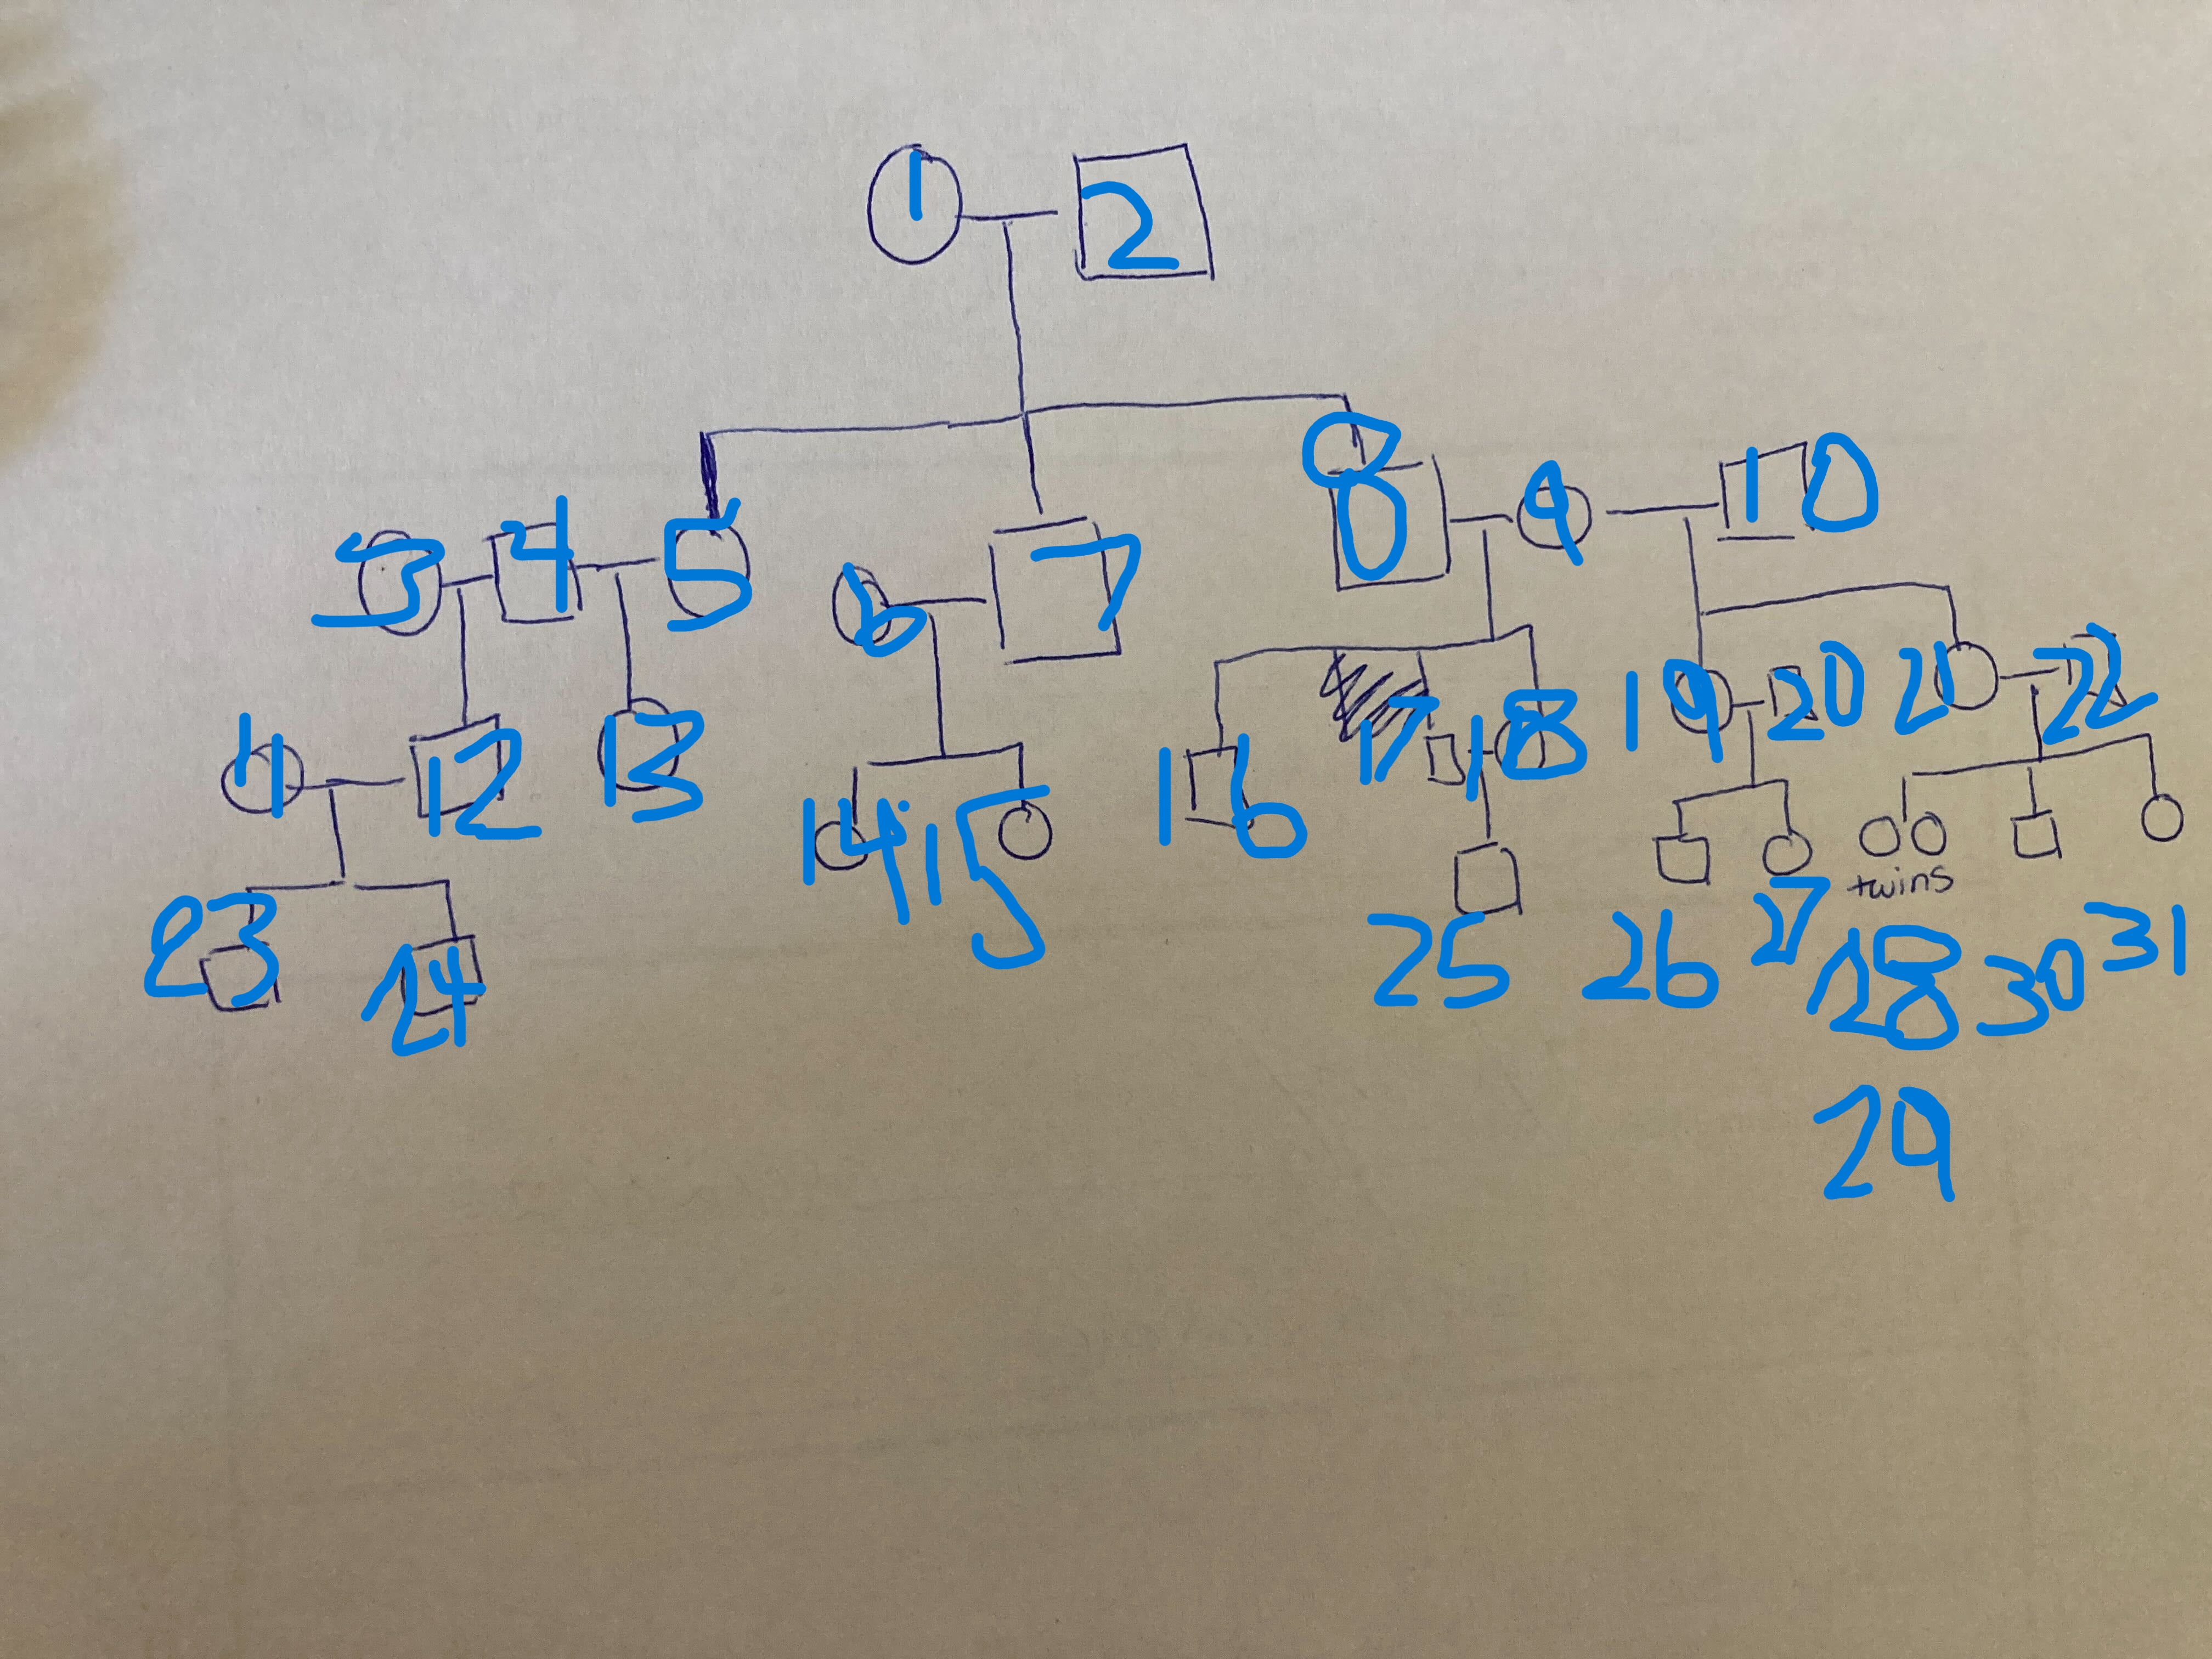 1 2
3 4 5 6 7 8 9 10
11 12 13 14 15 16 17 18 19 20 21 22
twins
23 24 25 26 27 28 30 31
29